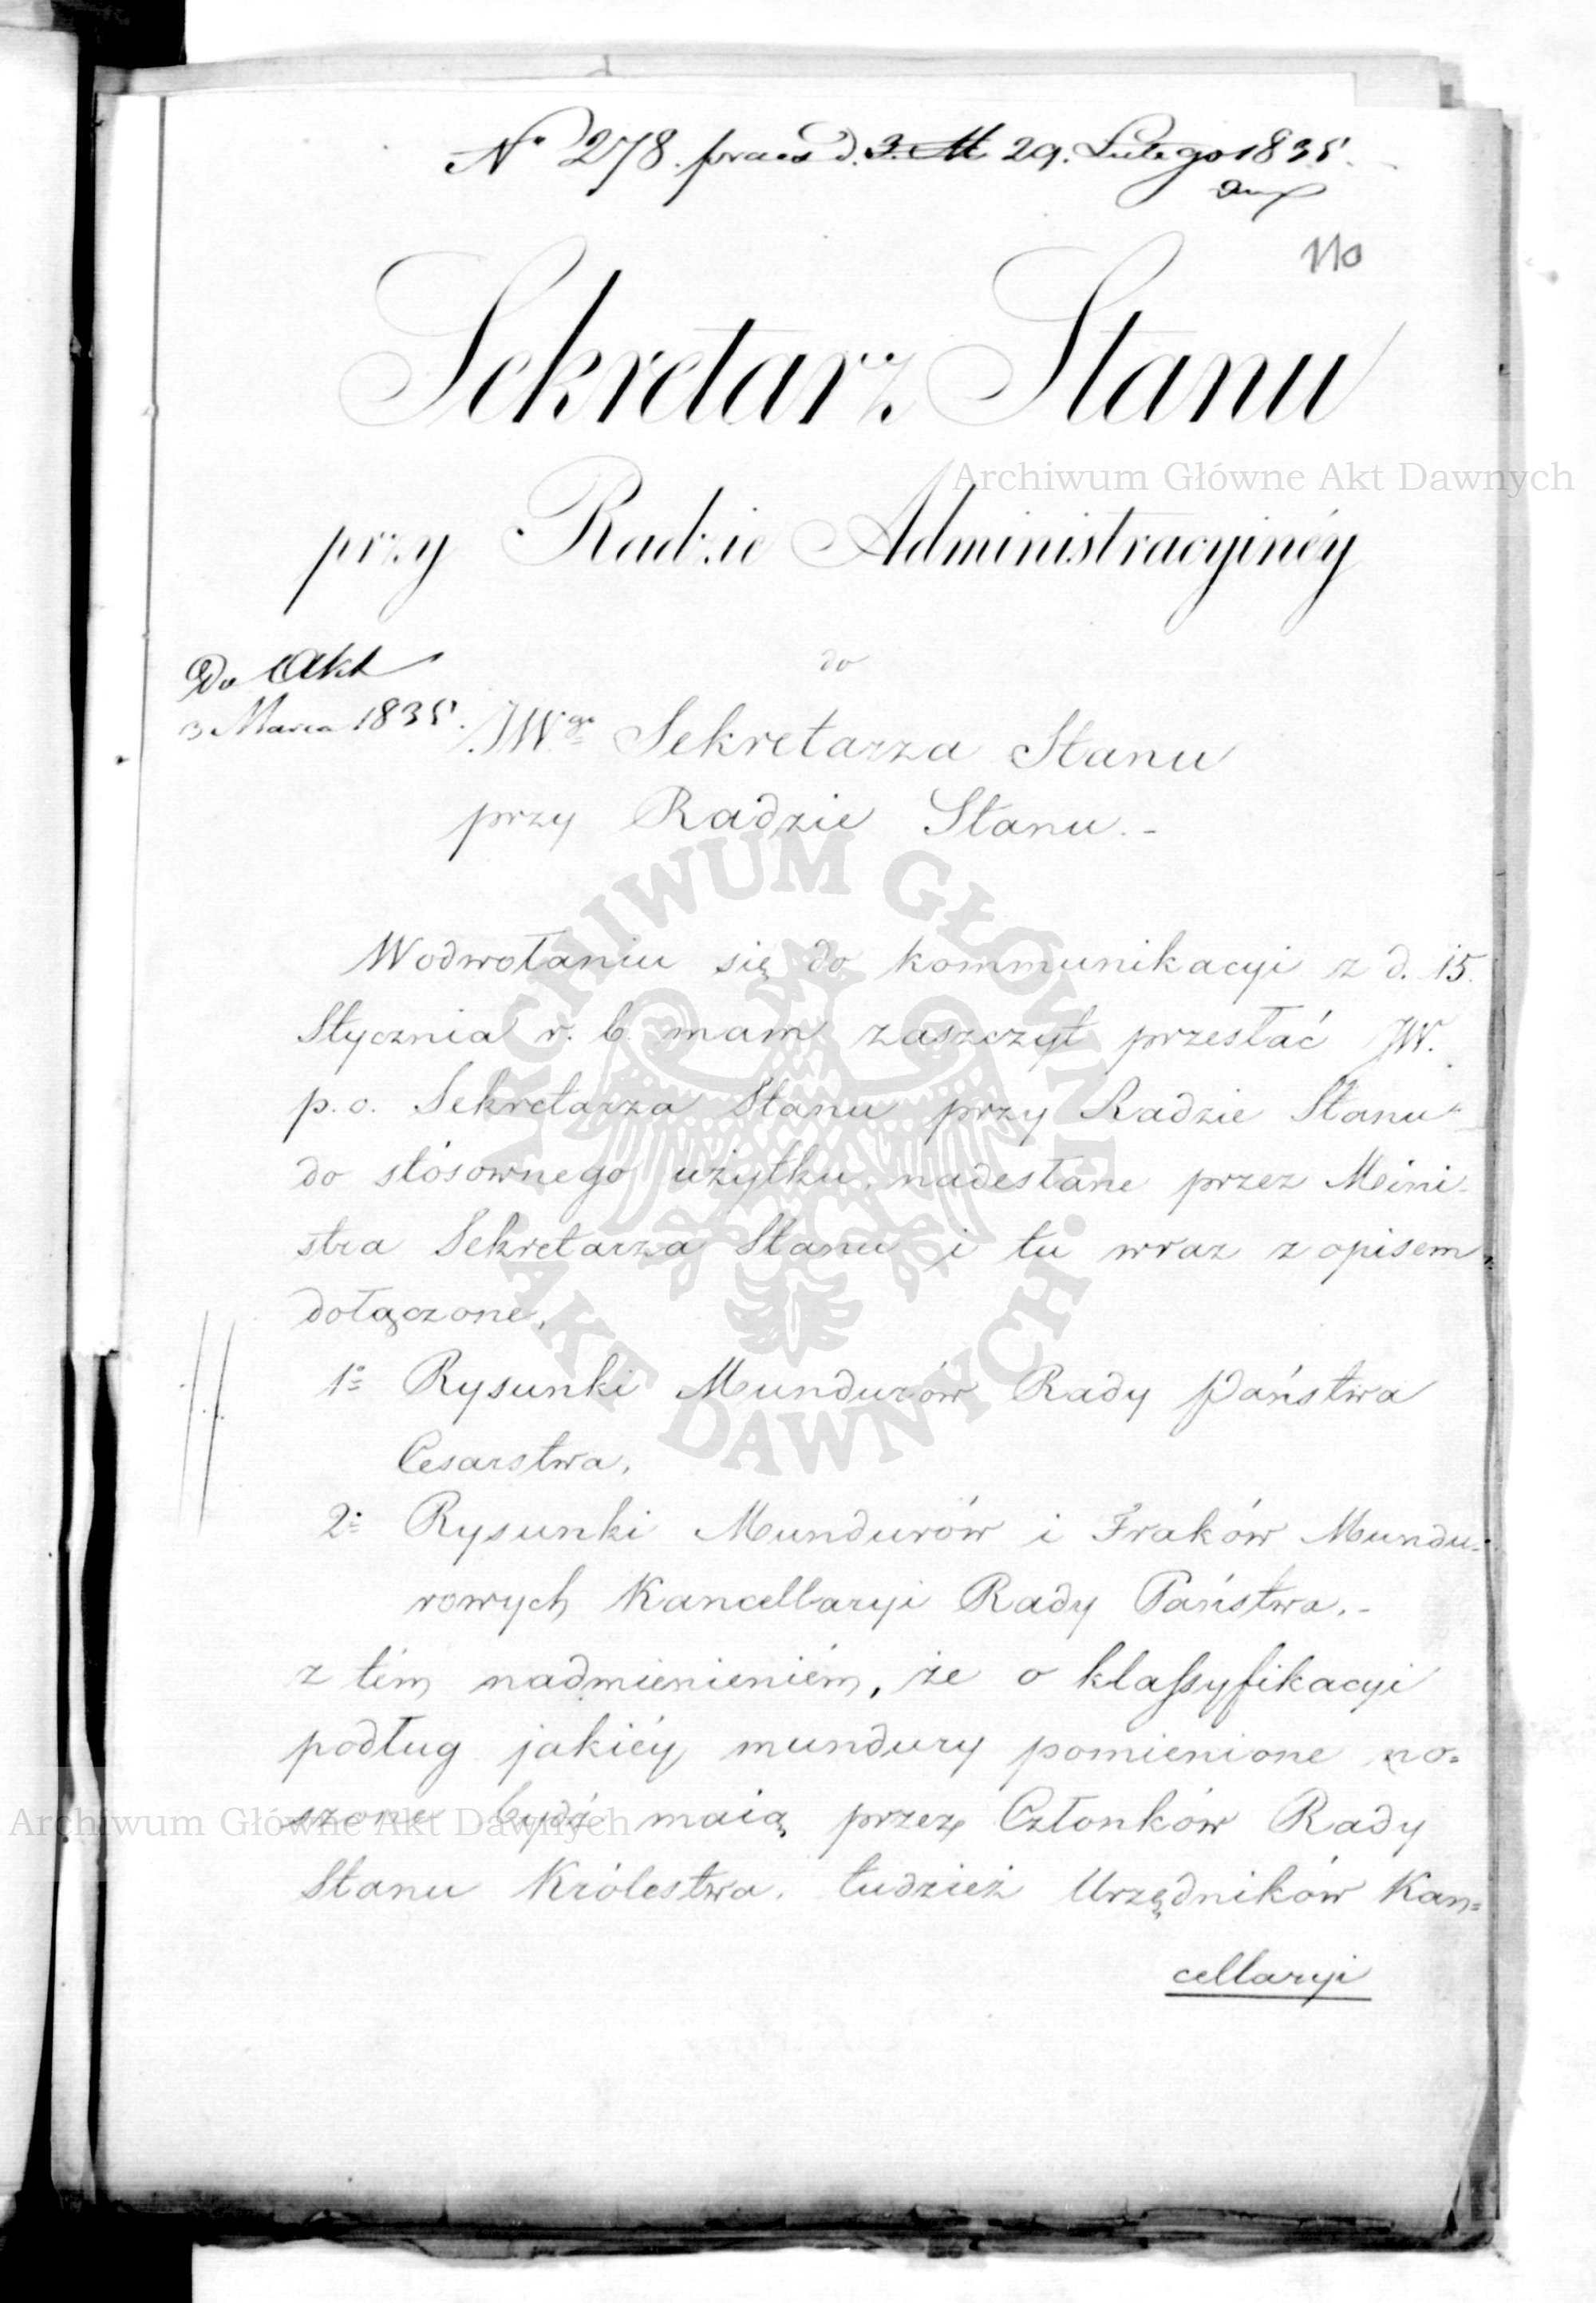 Nº 278. praes d. 3. M 29. Lutego 1835.
110
Sekretarz Stanu
przy Radzie Administracyinéy
Do Akt
3 Marca 1835.
do
JWgo Sekretarza Stanu
przy Radzie Stanu.-
W odwołaniu się do kommunikacyi z d. 15.
Stycznia r. b. mam zaszczyt przesłać JW.
p. o. Sekretarza Stanu przy Radzie Stanu
do stósownego użytku, nadesłane przez Mini-
stra Sekretarza Stanu i tu wraz z opisem
dołączone,
1º Rysunki Mundurów Rady Państwa
Cesarstwa,
2º Rysunki Mundurów i Fraków Mundu-
rowych Kancellaryi Rady Państwa.-
z tém nadmienieniém, że o klassyfikacyi
podług jakiéy mundury pomienione no=
szone bydź maią przez Członków Rady
Stanu Królestwa, tudzież Urzędników Kan=
cellaryi
Archiwum Główne Akt Dawnych
ARCHIWUM GŁÓWNE AKT DAWNYCH
Archiwum Główne Akt Dawnych